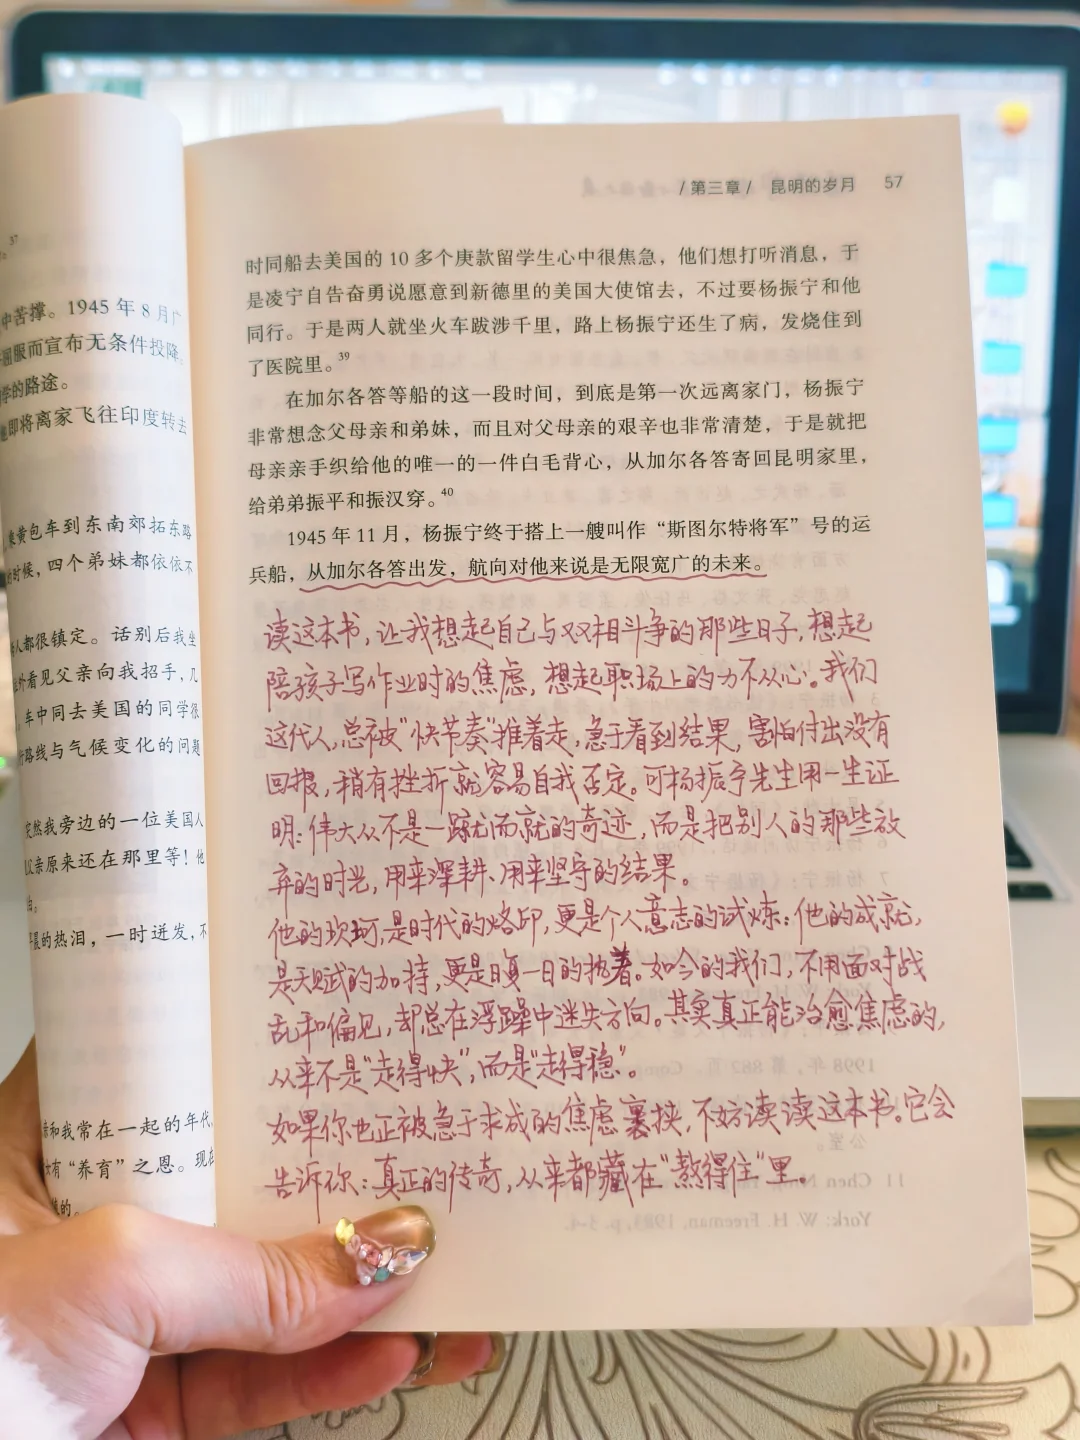 中苦撑。1945年8月广
屈服而宣布无条件投降。
学的路途。
即将离家飞往印度转去
黄包车到东南郊拓东路
时候，四个弟妹都依依不
人都很镇定。话别后我坐
外看见父亲向我招手，几
车中同去美国的同学很
行路线与气候变化的问题
突然我旁边的一位美国人
父亲原来还在那里等！他
的热泪，一时迸发，不
亲和我常在一起的年代，
有“养育”之恩。现在
的。
/ 第三章 / 昆明的岁月 57
时同船去美国的10多个庚款留学生心中很焦急，他们想打听消息，于
是凌宁自告奋勇说愿意到新德里的美国大使馆去，不过要杨振宁和他
同行。于是两人就坐火车跋涉千里，路上杨振宁还生了病，发烧住到
了医院里。39
在加尔各答等船的这一段时间，到底是第一次远离家门，杨振宁
非常想念父母亲和弟妹，而且对父母亲的艰辛也非常清楚，于是就把
母亲亲手织给他的唯一的一件白毛背心，从加尔各答寄回昆明家里，
给弟弟振平和振汉穿。40
1945年11月，杨振宁终于搭上一艘叫作“斯图尔特将军”号的运
兵船，从加尔各答出发，航向对他来说是无限宽广的未来。
读这本书，让我想起自己与双相斗争的那些日子，想起
陪孩子写作业时的焦虑，想起职场上的力不从心。我们
这代人，总被“快节奏”推着走，急于看到结果，害怕付出没有
回报，稍有挫折就容易自我否定。可杨振宁先生用一生证
明：伟大从不是一蹴而就的奇迹，而是把别人的那些放
弃的时光，用来深耕、用来坚守的结果。
他的坎坷，是时代的烙印，更是个人意志的试炼；他的成就，
是天赋的加持，更是日复一日的执着。如今的我们，不用面对战
乱和偏见，却总在浮躁中迷失方向。其实真正能治愈焦虑的，
从来不是“走得快”，而是“走得稳”。
如果你也正被急于求成的焦虑裹挟，不妨读读这本书。它会
告诉你：真正的传奇，从来都藏在“熬得住”里。